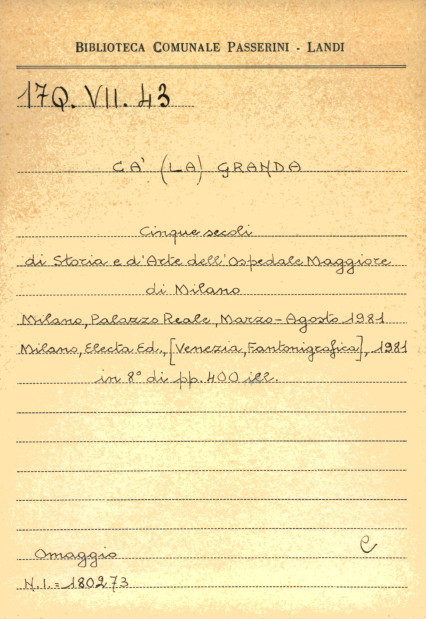 BIBLIOTECA COMUNALE PASSERINI - LANDI
17Q. VII. 43
CA' (LA) GRANDA
Cinque secoli
di Storia e d'Arte dell'Ospedale Maggiore
di Milano
Milano, Palazzo Reale, Marzo-Agosto 1981
Milano, Electa Ed., [Venezia, Fantonigrafica], 1981
in 8° di pp. 400 ill.
Omaggio
e
N.I. = 180273